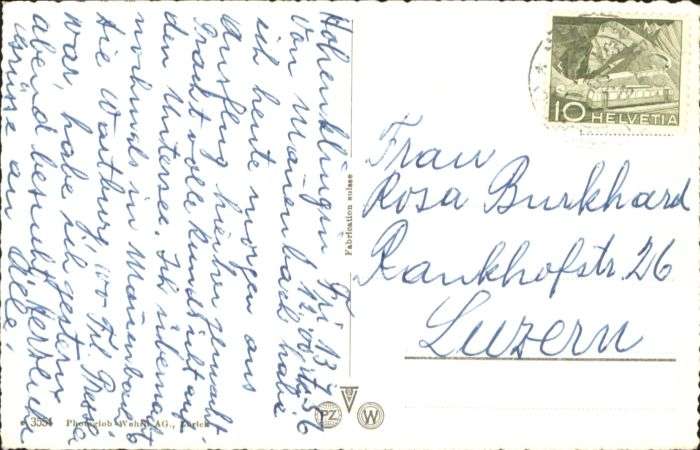 Hohenklingen Frei 13
Von Mammern
ich heute morgen aus
Ausflug hierher gemacht
Pracht volle Rundsicht auf
den Untersee. Ich übernacht
nochmals in
die Wartburg, wo Frl.
war, habe sie gestern
abend besucht, Herzliche
Grüsse an
Fabrication suisse
10 HELVETIA
Frau
Rosa Burkhard
Rankhofstr. 26
Luzern
PZ W
3554 Photoglob-Wehrli AG., Zürich